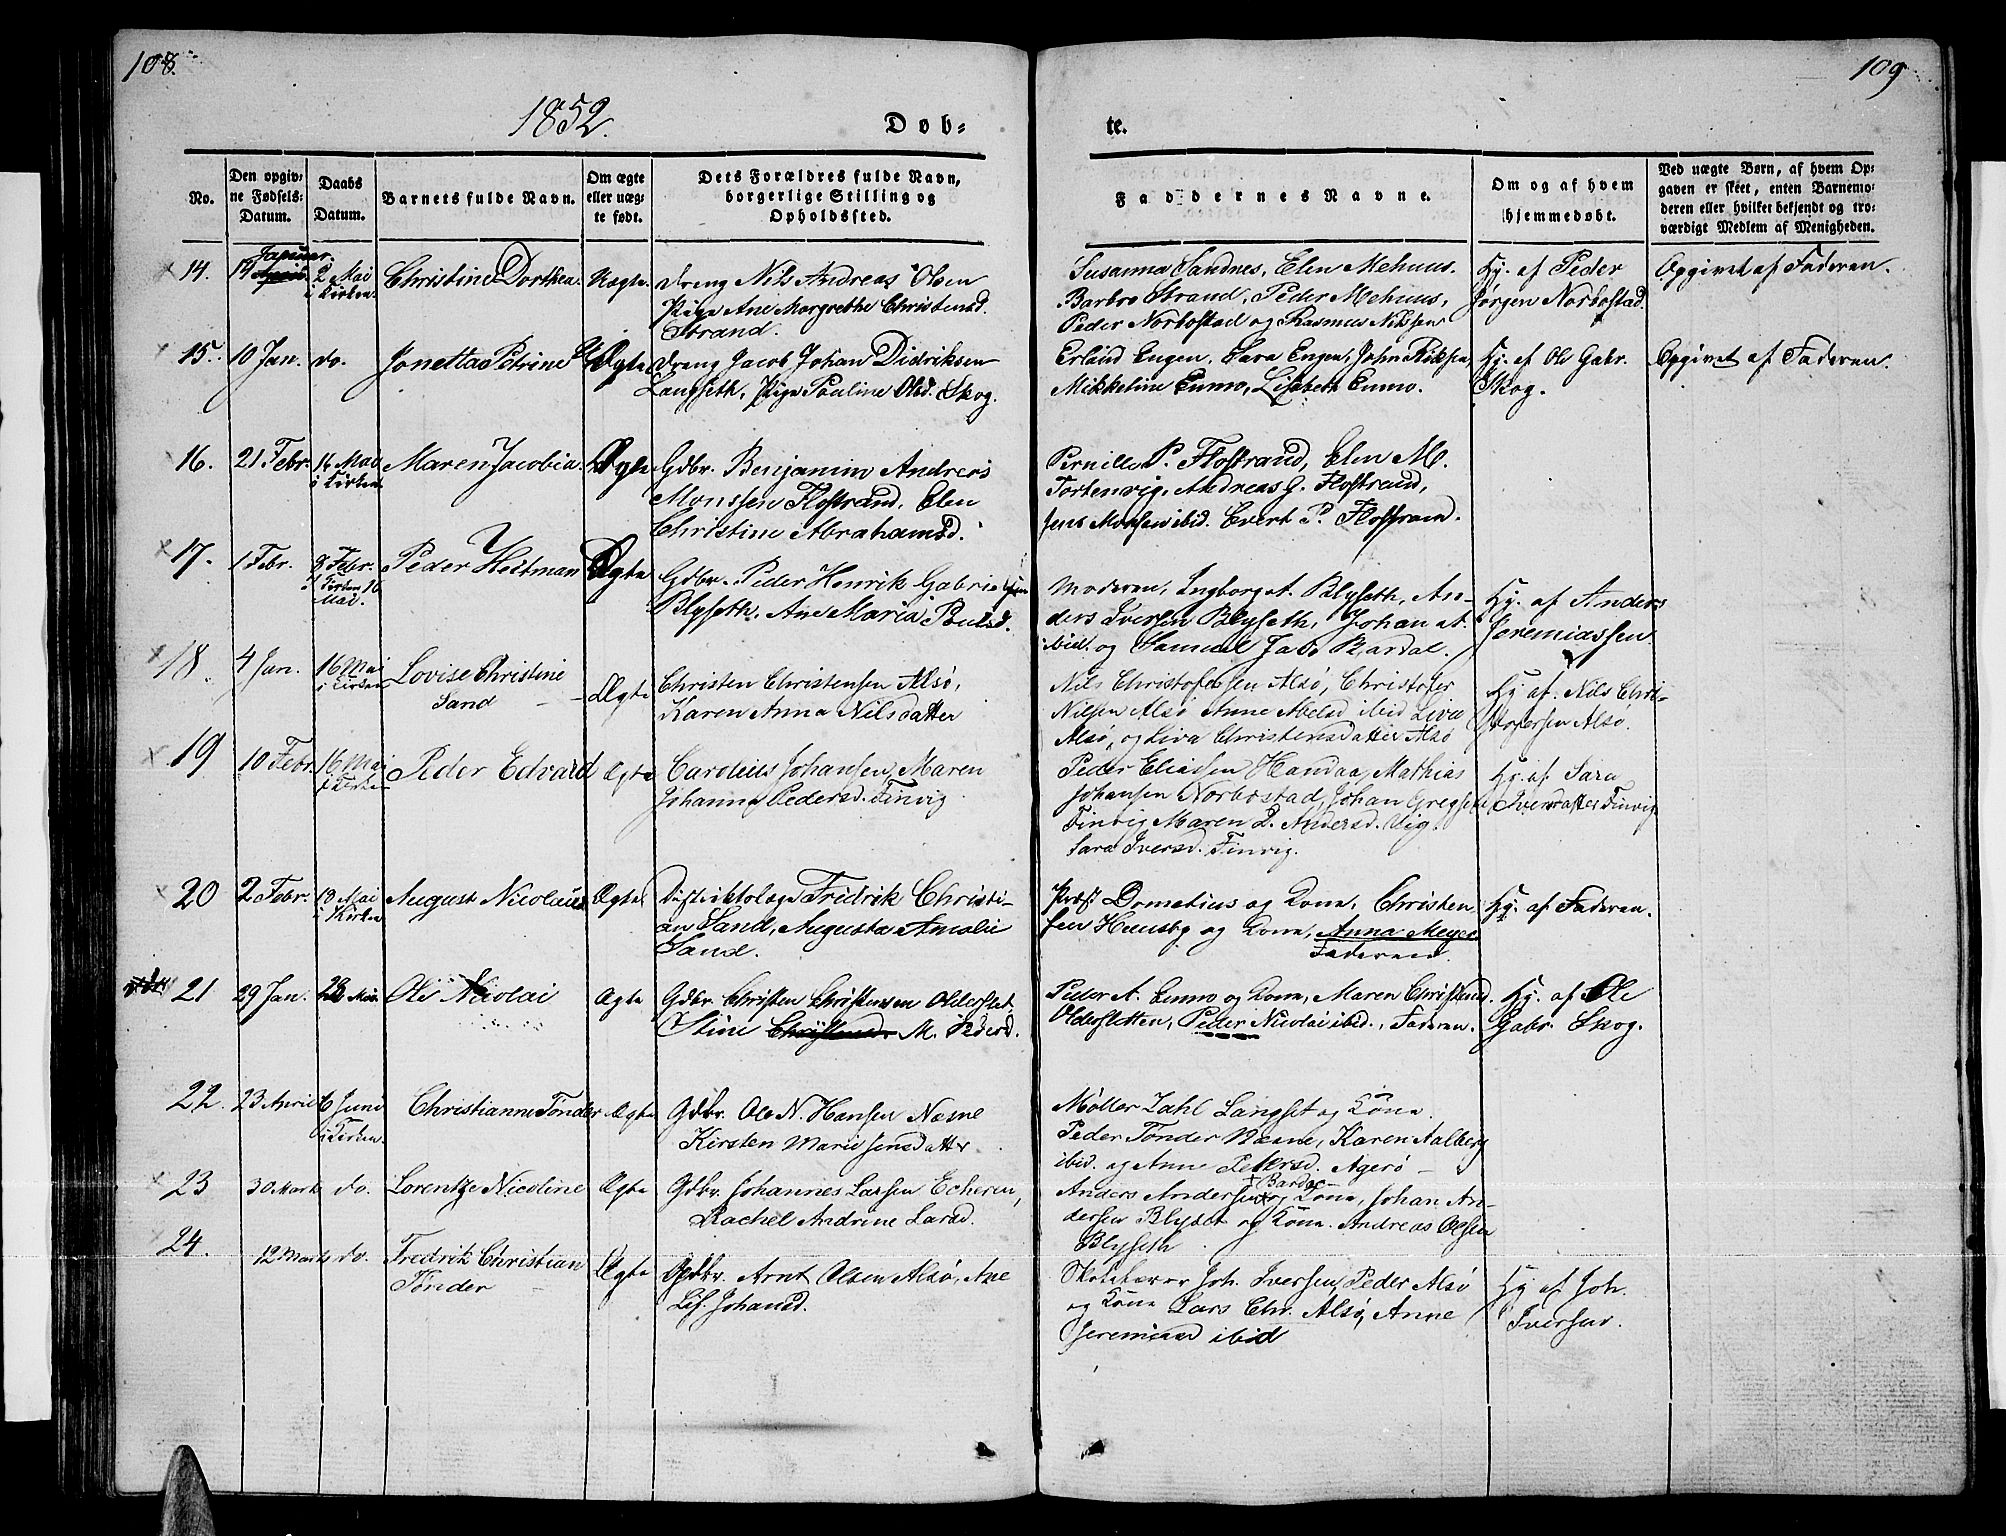 108.
109
1852.
Døb-
te.
No.
Den opgiv-
ne Fødsels-
Datum.
Daabs
Datum.
Barnets fulde Navn.
Om ægte
eller uæg-
te født.
Dets Forældres fulde Navn,
borgerlige Stilling og
Opholdssted.
Faddernes Navne.
Om og af hvem
hjemmedøbt.
Ved uægte Børn, af hvem Op-
gaven er skeet, enten Barnemo-
deren eller hvilket bekjendt og tro-
værdigt Medlem af Menigheden.
14.
Januar.
14 April
2 Mai
i Kirken.
Christine Dorthea.
Uægte.
Dreng Nils Andreas Olsen
Pige Ane Margrethe Christensd.
Strand.
Susanna Sandnes, Elen Mehuus.
Barbro Strand, Peder Mehuus,
Peder Norbostad og Rasmus Nilssen
Hj. af Peder
Jørgen Norbostad.
Opgivet af Faderen.
15.
10 Jan.
do.
Jonetta Petrine
Uægte
Dreng Jacob Johan Didriksen
Langseth, Pige Pauline Olsd. Skog.
Erland Engen, Sara Engen, John
Mikkeline Enmo, Lisabeth Enmo.
Hj. af Ole Gabr.
Skog.
Opgivet af Faderen.
16.
21 Febr.
16 Mai
i Kirken
Maren Jacobia.
Ægte
Gdbr. Benjamin Andreas
Monssen Flostrand, Elen
Christine Abrahamsd.
Pernille P. Flostrand, Elen M.
Tortenvig, Andreas G. Flostrand,
Jens Monsen ibid. Evert P. Flostrand.
17.
1 Febr.
8 Febr.
i Kirken 16
Mai.
Peder Heitman
Ægte
Gdbr. Peder Henrik Gabrielsen
Blyseth, Ane Maria Paulsd.
Moderen, Ingborg A. Blyseth, An-
ders Iversen Blyseth, Johan A.
ibid. og Samuel Jac. Bardal.
Hj. af Anders
Jeremiassen
18.
4 Jan.
16 Mai
i Kirken
Lovise Christine
Sand
Ægte
Christen Christensen Alsø,
Karen Anna Nilsdatter
Nils Christofersen Alsø, Christofer
Nilsen Alsø Anne Abelsd ibid Liva
Alsø, og Liva Christensdatter Alsø
Hj. af. Nils Chri-
stofersen Alsø.
19
10 Febr.
16 Mai
i Kirken
Peder Edvard
Ægte
Carolius Johansen, Maren
Johanna Pedersd. Finvig
Peder Eliassen Handaa, Mathias
Johansen Norbostad, Johan Gregsen
Finvig Maren P. Andersd. Vig.
Sara Iversd. Finvig.
Hj. af Sara
Iversdatter Finvig
20
2 Febr.
18 Mai
i Kirken
August Nicolaus
Ægte
Distriktslæge Fridrik Christi-
an Sand, Augusta Amalie
Sand.
Provst Dometius og Kone, Christen
sen Huusby og Kone, Anna Meyer
Faderen
Hj. af Faderen.
21
29 Jan.
Mai
Ole Nicolai
Ægte
Gdbr. Christen Christensen Olderslet,
Stine M. Pedersd.
Peder A. Enmo og Kone, Maren Christensd.
Oldersletten, Peder Nicolai ibid., Faderen.
Hj. af Ole
Gabr. Skog.
22.
23 April
6 Juni
i Kirken.
Christianne Tønder
Ægte
Gdbr. Ole N. Hansen Næsne
Kirsten Marie Jensdatter
Møller Zahl Langset og Kone.
Peder Tønder Næsne, Karen Aalberg
ibid. og Anne Petersd. Agerø
23
30 Marts
do.
Lorentze Nicoline
Ægte
Gdbr. Johannes Larsen Echeren,
Rachel Andrine Larsd.
Bardal
Anders Andersen og Kone, Johan An-
dersen Blyset og Kone. Andreas Olsen
Blyseth
24.
12 Marts
do.
Fredrik Christian
Tønder
Ægte
Gdbr. Arnt Olsen Alsø, Ane
Lis. Johansd.
Skolelærer Joh. Iversen, Peder Alsø
og Kone Lars Chr. Alsø, Anne
Jeremiasd ibid
Hj af Joh.
Iversen.